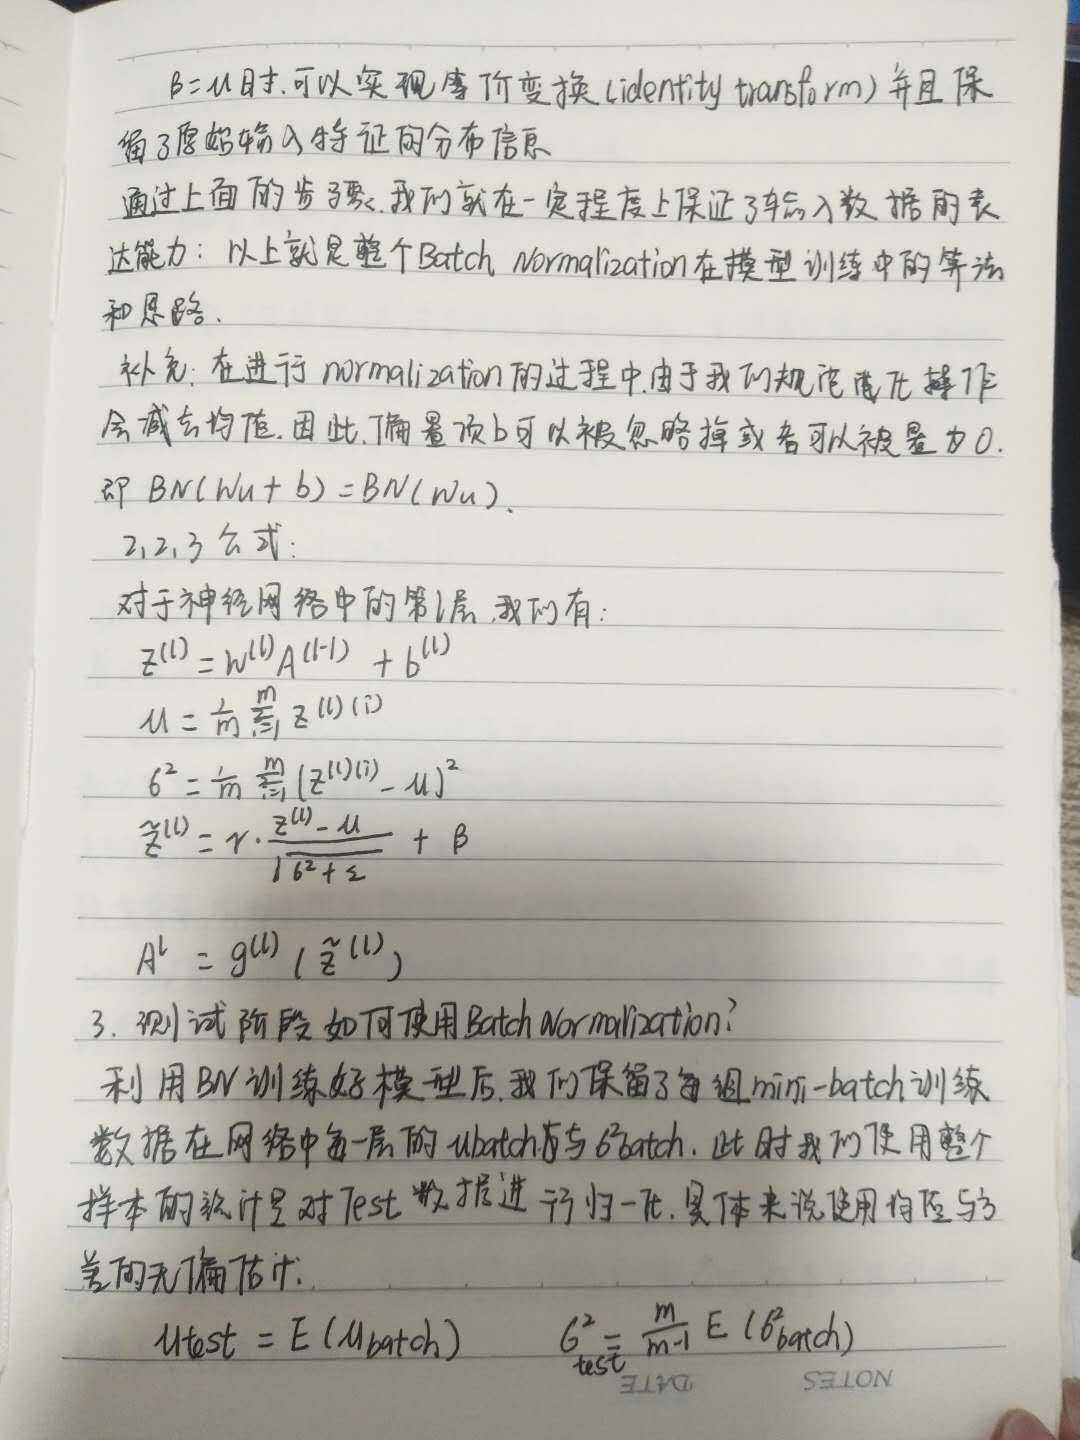 β=μ时.可以实现等价变换(identity transform)并且保
留了原始输入特征的分布信息
通过上面的步骤.我们就在一定程度上保证了输入数据的表
达能力:以上就是整个Batch Normalization在模型训练中的算法
和思路.
补充:在进行normalization的过程中.由于我们规范化操作
会减去均值.因此.偏置项b可以被忽略掉或者可以被置为0.
即 BN(Wu+b)=BN(Wu).
2,2,3公式:
对于神经网络中的第l层.我们有:
Z^(l) = W^(l) A^(l-1) + b^(l)
μ = 1/m Σ_{i=1}^{m} Z^(l)(i)
σ² = 1/m Σ_{i=1}^{m} (Z^(l)(i) - μ)²
Z̃^(l) = γ · (Z^(l) - μ)/√(σ²+ε) + β
A^l = g^(l) (Z̃^(l))
3. 测试阶段如何使用Batch Normalization?
利用BN训练好模型后.我们保留了每组mini-batch训练
数据在网络中每一层的μbatch与σ²batch.此时我们使用整个
样本的统计量对Test数据进行归一化.具体来说使用均值与方
差的无偏估计.
μtest = E(μbatch) σ²test = m/(m-1) E(σ²batch)
DATE NOTES